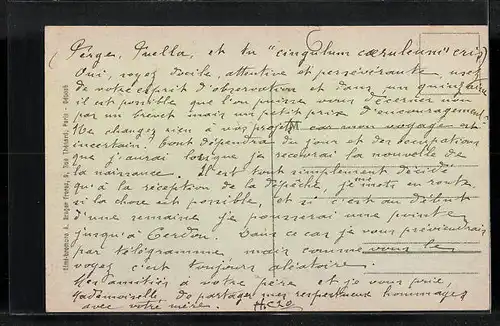 (Perge, Puella, et tu "cingulum cæruleum" eris)
Oui, soyez docile, attentive et persévérante, usez
de votre esprit d'observation et dans un quinzaine
il est possible que l'on puisse vous décerner non
pas un brevet mais un petit prix d'encouragement.
Ne changez rien à vos projets car mon voyage est
incertain; tout dépendra du jour et des occupations
que j'aurai lorsque je recevrai la nouvelle de
la naissance. Il est tout simplement décidé
qu'à la réception de la dépêche, je me mets en route
si la chose est possible, et si c'est au début
d'une semaine je pousserai une pointe
jusqu'à Cerdon. Dans ce cas je vous préviendrais
par télégramme mais comme vous le
voyez c'est toujours aléatoire.
Mes amitiés à votre père et je vous prie,
Mademoiselle, de partager mes respectueux hommages
avec votre mère.
Imp-bromure A. Breger Frères, 9, Rue Thénard, Paris